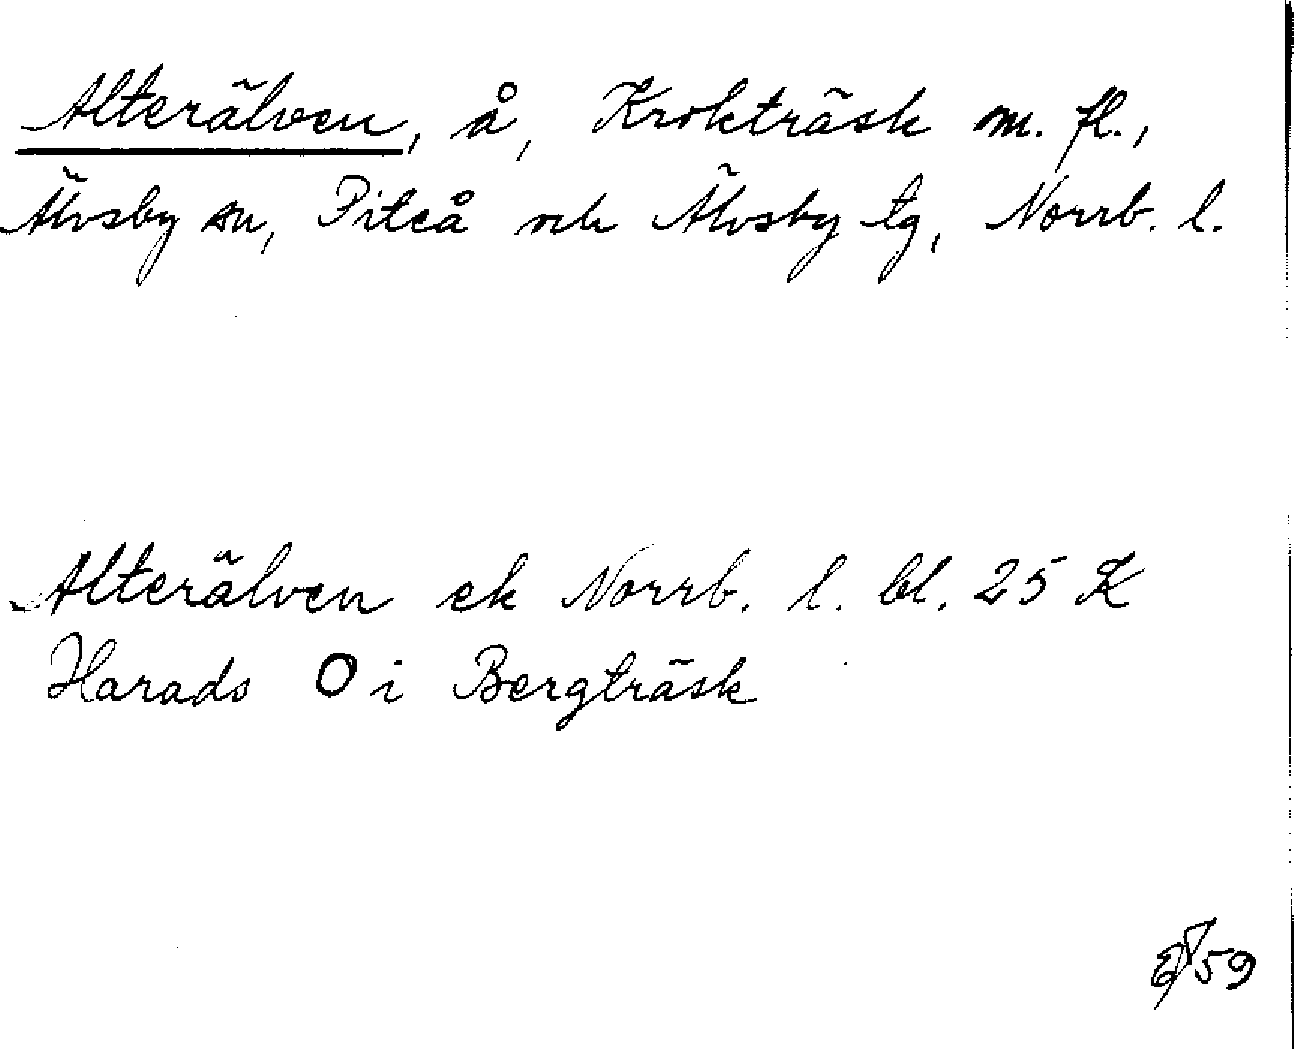 Alterälven, å, Krokträsk m. fl.,
Älvsby sn, Piteå och Älvsby tg, Norrb. l.
Alterälven ek Norrb. l. bl. 25 K
Harads O i Bergträsk
59